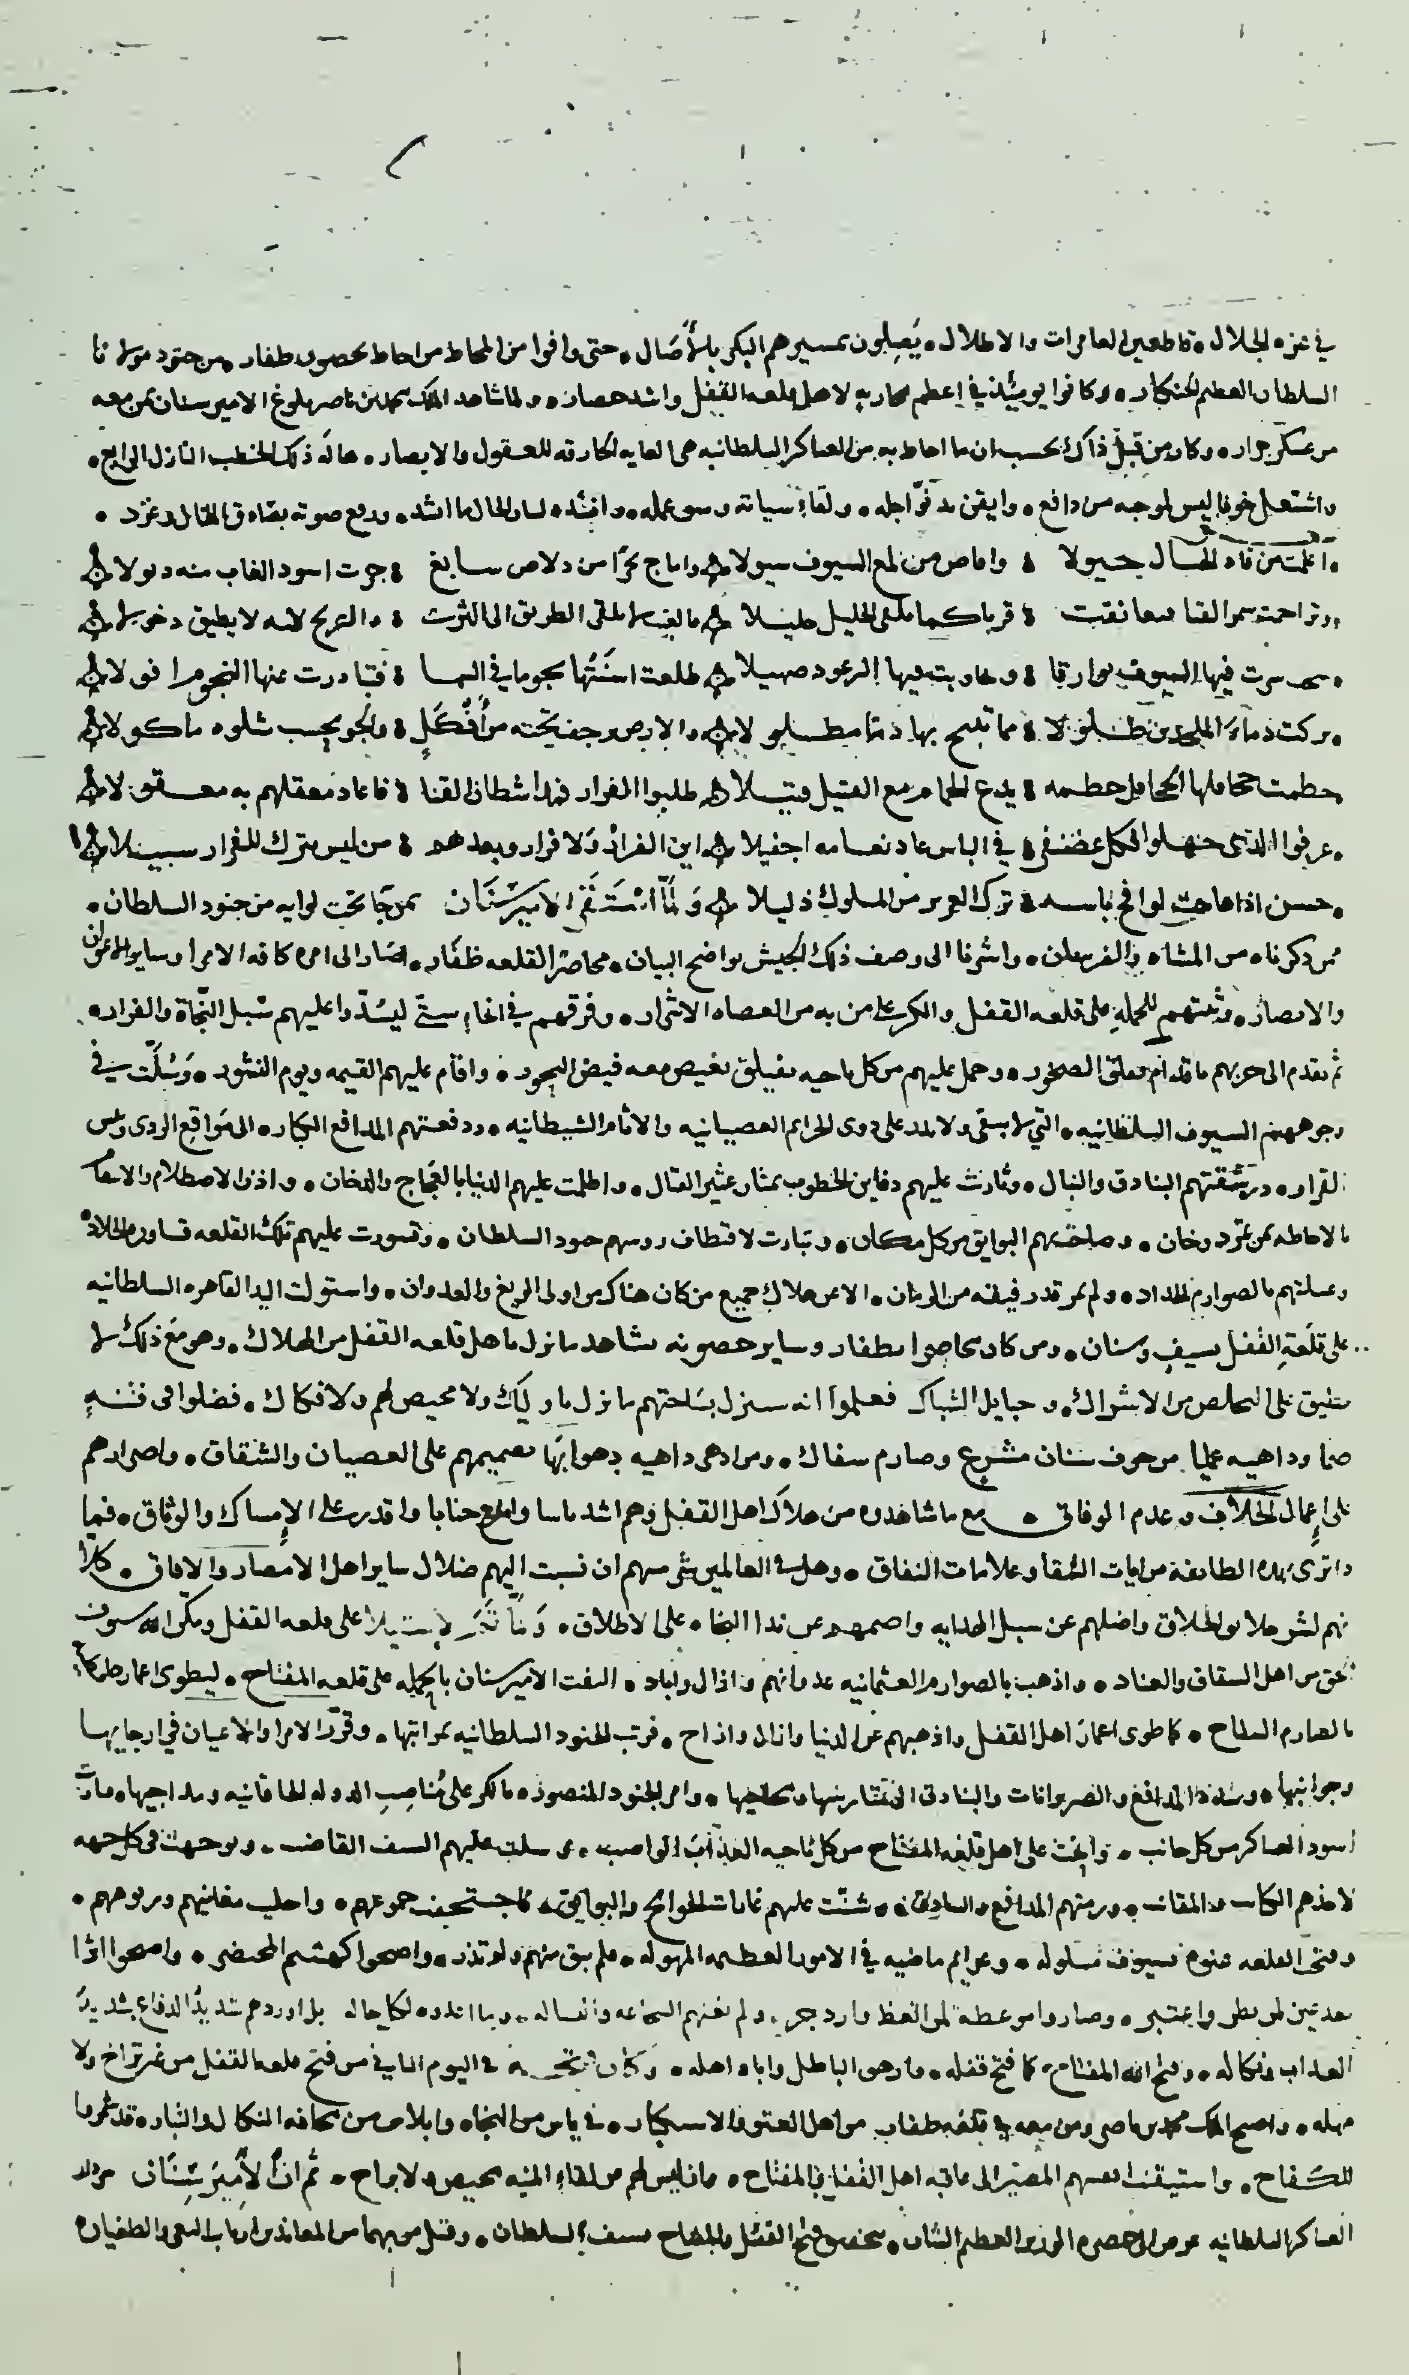 في غزه الجلال • قاطعين العامرات والاطلال • يَصِلون بمسيرهم البكر بالأصَال • حتى وافوا من المحاط من احاط بحصون ظفار • من جنود مولانا
السلطان العظم الخنكار • وكانوا يوميئذ في اعظم محاربه لاهل قلعه القفل واشد حصار • ولما شاهد الملك محمد بن ناصر بلوغ الامير سنان بمن معه
من عسكر جرار • وكان من قبل ذاك يحسب ان ما احاط به من العساكر السلطانيه هى الغايه الخارقه للعقول والابصار • هاله ذلك الخطب النازل الرايع •
واشتعل خوفا ليس لموجبه من دافع • وايقن بدنوّ اجله • ولقاء سياته وسوء عمله • وانشده لسان الحال ما انشد • ورفع صوته بقناه في الحال وغرد •
من قاد الجبال خيولا • وافاض من لمع السيوف سيولا واماج بحرًا من دلاص سابغ • جرت اسود الغاب منه ذيولا
وتزاحمت سمر القنا فتعانقت • قربا كما يلقى الخليل خليلا فالغيث لا يلقى الطريق الى الثرى • والريح لانه لا يطيق دخولا
سحب سرت فيها السيوف بوارقا • وتجاوبت فيها الرعود صهيلا طلعت اسنَّتُها نجوما في السما • فتبادرت عنها النجوم افولا
تركت دماءَ الملحدين طلولا • مما تبيح بها دمًا مطلولا والارض ترجف تحته من أَفْكَلٍ • والجو يحسب شلوه ماكولا
حطمت جحافلها الجحافل حطمه • يدع الحمام مع القتيل قتيلا طلبوا الفرار فمد اشطان القنا • فاعاد معقلهم به معقولا
عرفوا الذى جهلوا فكل غضنفر • في الباس عاد نعامه اجفيلا اين الفرار ولا فرار وبعدهم • من ليس يترك للفرار سبيلا
حسن اذا هاجت لواقح باسه • ترك العزيز من الملوك ذليلا وَلمَّا اسْتَقَرَّ الاَمِيرُ سِنَان بمن جا تحت لوايه من جنود السلطان •
ممن ذكرناه من المشاه والفرسان • واشرنا الى وصف ذلك الجيش بواضح البيان • محاصرا لقلعه ظفار • اشار الى امره كافه الامرا وساير الاعوان
والانصار • وبعثهم للحمله على قلعه القفل والكر على من به من العصاه الاشرار • وفرقهم في انحاء ستّى ليسُدّوا عليهم سُبل النَّجاة والفرار •
ثم تقدم الى حربهم باقدام يفلق الصخور • وحمل عليهم من كل ناحيه بفيلق يغيض معه فيض البحور • واقام عليهم القيمه ويوم النشور • وَسُلَّت في
وجوههم السيوف السلطانيه • التي لا تبقى ولا تذر على ذوى الجرايم العصيانيه والاثام الشيطانيه • ودفعتهم المدافع الكبار • الى مواقع الردى وبئس
القرار • ورَشَقَتهم البنادق والنبال • وثارت عليهم دفاين الخطوب بمثار عثير القتال • واظلمت عليهم الدنيا بالعجاج والدخان • واذن الاصطلام والانتقام
بالاحاطه بمن تمرّد وخان • وصاحت بهم البوايق من كل مكان • وتبارت لاقتطاف روسهم جنود السلطان • وتسورت عليهم تلك القلعه قساوره الجلاد
وعمّتهم بالصوارم الحداد • ولم يمر قدر فيقه من الزمان • الا عن هلاك جميع من كان هناك من اولى الزيغ والعدوان • واستولت اليد القاهره السلطانيه
على قلعَةِ القفل بسيفٍ وسنان • ومن كان محاصرا بظفار وساير حصونه شاهد ما نزل باهل قلعه القفل من الهلاك • وهو مع ذلك لا
يطيق على التخلص من الاشراك • وحبايل الشباك فعلموا انه سينزل بساحتهم ما نزل باوليك ولا محيص لهم ولا فكاك • فضلوا في فتنه
صما وداهيه عميا من خوف سنان مشرع وصارم سفاك • ومن ادهى داهيه دهوا بهَا تصميمهم على العصيان والشقاق • واصرارهم
على إعمال الخلاف وعدم الوفاق • مع ما شاهدوه من هلاك اهل القفل وهم اشد باسا وامنع جنابا واقدر على الامساك والوثاق • فما
ذا ترى بهذه الطايفه من ايات الشقا وعلامات النفاق • وهل في العالمين شر منهم ان نسبت اليهم ضلال ساير اهل الامصار والافاق • كلا
انهم لشر ملا من الخلاق واضلهم عن سبيل الهدايه واصمهم عن ندا النجاه على الاطلاق • وَلمَّا تَمَّ الاستيلا على قلعه القفل ومكن الله سيوف
الحق من اهل الشقاق والعناد • واذهب بالصوارم العثمانيه عدوانهم وازال واباد • التفت الامير سنان بالحمله على قلعه المفتاح • ليطوى اعمار
بالصارم السفاح • كما طوى اعمار اهل القفل واذهبهم عن الدنيا وازال وازاح • فرتب الجنود السلطانيه بمراتبها • وقرّر الامرا والاعيان في ارجايها
وجوانبها • المدافع والضربزانات والبنادق • وامر الجنود المنصوره بالكر على مُناصِبِ الدوله الخاقانيه
اسود العساكر من كل جانب • واتجهت على اهل قلعه المفتاح من كل ناحيه العذاب الواصب • وسلت عليهم السيف القاضب • وتوجهت في كل جهه
لاخذهم الكتايب والمقانب • ورمتهم المدافع والبنادق • وشنّت عليهم غارات الجوايح والبوايق • جموعهم •
وفتحوا القلعه عنوه بسيوف مسلوله • وعزايم ماضيه في الامور العظيمه المهوله • فلم تبق منهم ولم تذر • واصبحوا كهشيم المحتضر • واصبحوا اثرا
بعد عين لمن نظر واعتبر • وصاروا موعظه لمن اتعظ وازدجر • ولم تغنهم الشجاعه والبساله • بل اوردهم شديدُ الدفاع شديدَ
العذاب ونكاله • وفتح الله المفتاح كما فتح قفله • وازهق الباطل واباد اهله • وكان فتحه في اليوم الثاني من فتح قلعه القفل من غير تراخ ولا
مهله • واصبح الملك محمد بن ناصر ومن معه في قلعَه ظفار من اهل العتو والاستكبار • في ياس من النجاه وابلاس من مخافه النكال والتبار • قد شمروا
للكفاح • واستيقنت انفسهم المصير الى ما فيه اهل القفل والمفتاح • وان ليس لهم من لقاء المنيه محيص ولا براح • ثم انَّ الأميرَ سِنَان
العساكر السلطانيه عرض الى حضره الوزير العظيم الشان • بتحقيق فتح القفل والمفتاح بسيف السلطان • وقتل من بهما من المعاندين ارباب البغى والطغيان